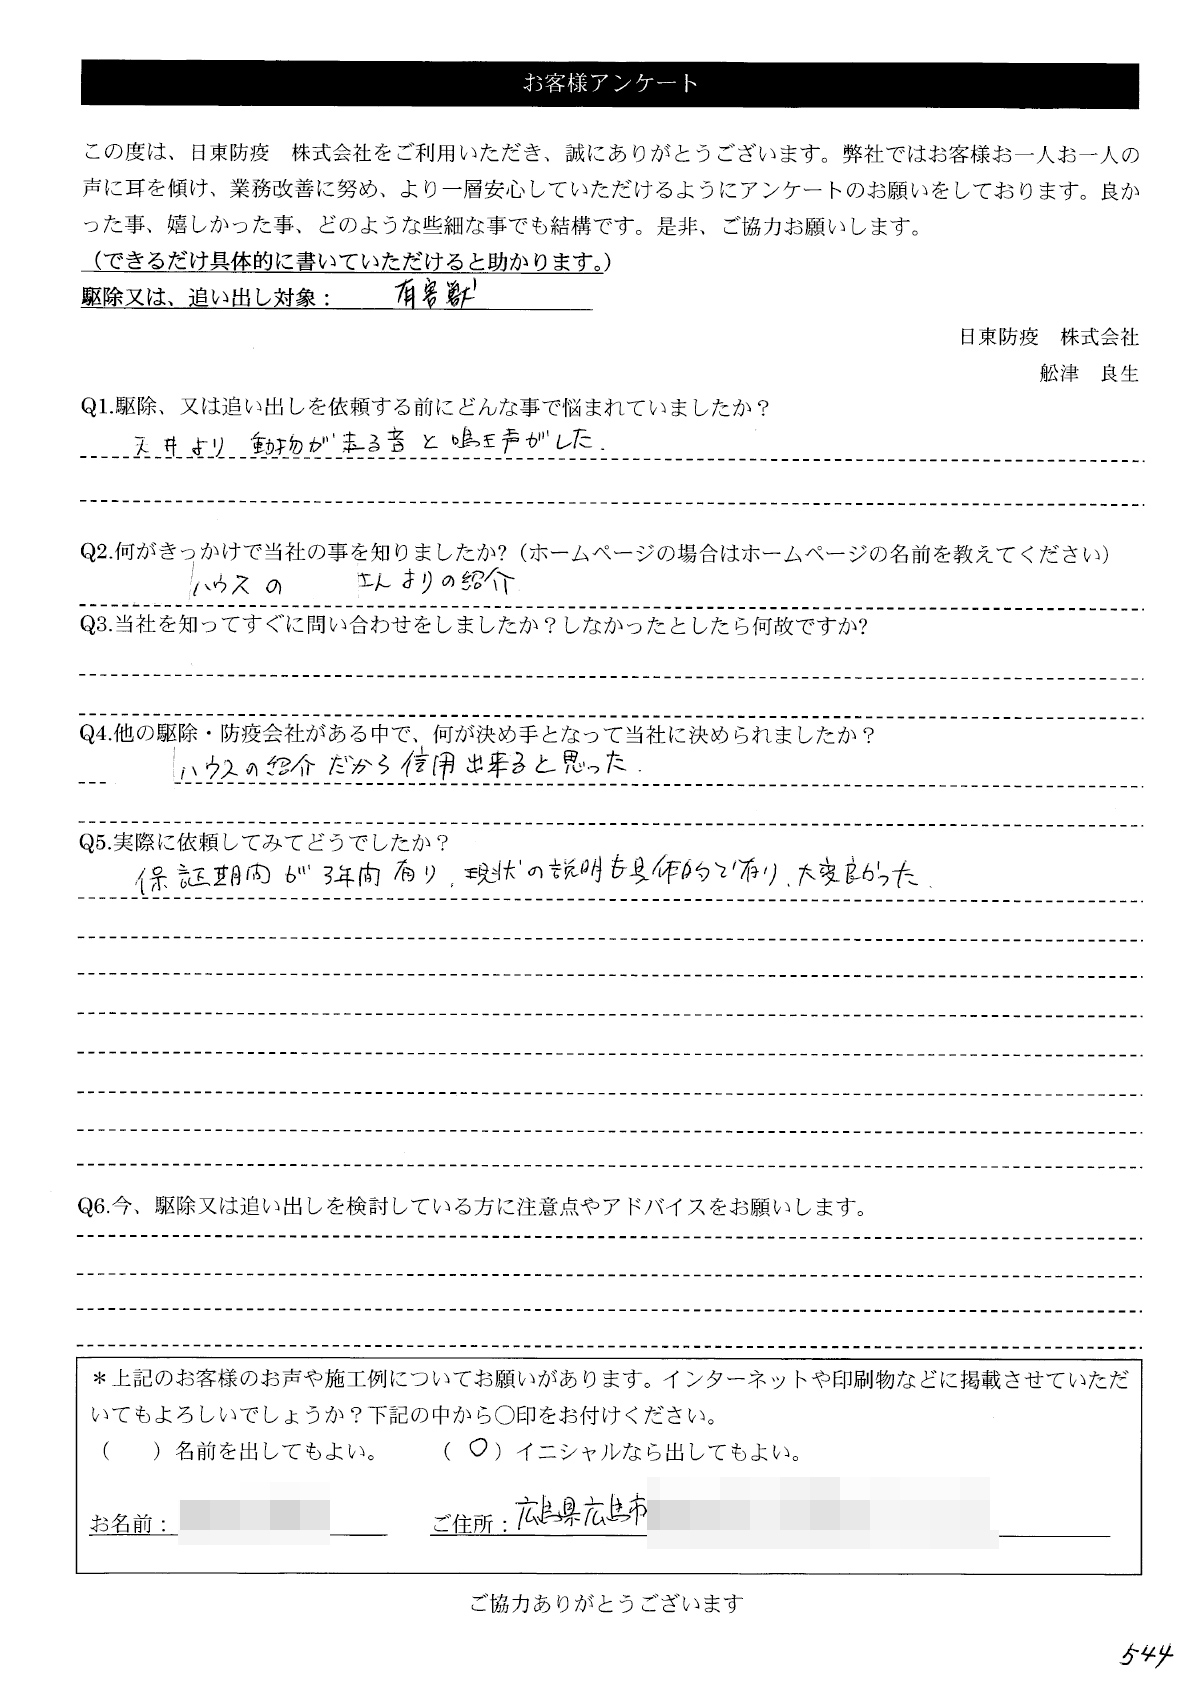 お客様アンケート
この度は、日東防疫　株式会社をご利用いただき、誠にありがとうございます。弊社ではお客様お一人お一人の
声に耳を傾け、業務改善に努め、より一層安心していただけるようにアンケートのお願いをしております。良か
った事、嬉しかった事、どのような些細な事でも結構です。是非、ご協力お願いします。
（できるだけ具体的に書いていただけると助かります。）
駆除又は、追い出し対象：　有害獣
日東防疫　株式会社
舩津　良生
Q1.駆除、又は追い出しを依頼する前にどんな事で悩まれていましたか？
天井より動物が来る音と鳴き声がした.
Q2.何がきっかけで当社の事を知りましたか?（ホームページの場合はホームページの名前を教えてください）
ハウスの　　さんよりの紹介
Q3.当社を知ってすぐに問い合わせをしましたか？しなかったとしたら何故ですか?
Q4.他の駆除・防疫会社がある中で、何が決め手となって当社に決められましたか？
ハウスの紹介だから信用出来ると思った.
Q5.実際に依頼してみてどうでしたか？
保証期内が3年間有り、現状の説明も具体的で有り、大変良かった.
Q6.今、駆除又は追い出しを検討している方に注意点やアドバイスをお願いします。
＊上記のお客様のお声や施工例についてお願いがあります。インターネットや印刷物などに掲載させていただ
いてもよろしいでしょうか？下記の中から〇印をお付けください。
（　　）名前を出してもよい。　　（ ○ ）イニシャルなら出してもよい。
お名前：　　ご住所：広島県広島市
ご協力ありがとうございます
544